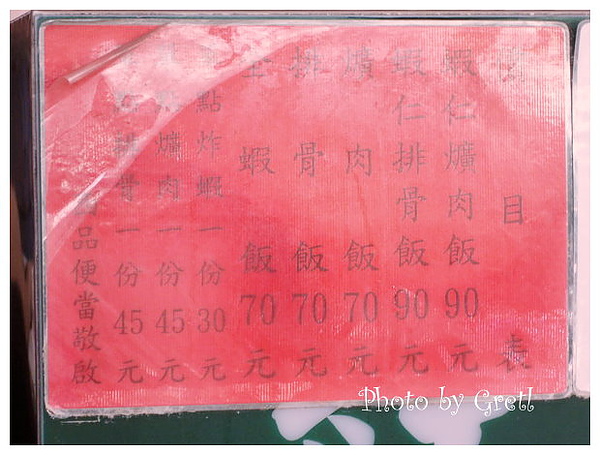 價目表
蝦仁爌肉飯90元
蝦仁排骨飯90元
爌肉飯70元
排骨飯70元
全蝦飯70元
單點炸蝦一份30元
單點爌肉一份45元
單點排骨一份45元
品便當敬啟
Photo by Gretl